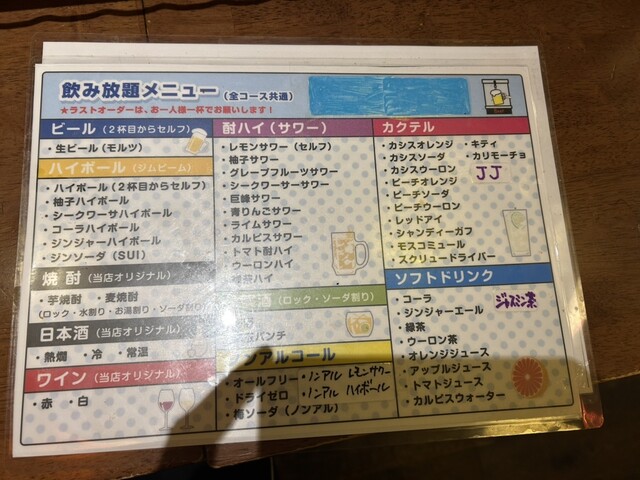 飲み放題メニュー(全コース共通)
★ラストオーダーは、お一人様一杯でお願いします!
ビール(2杯目からセルフ)
・生ビール(モルツ)
ハイボール(ジムビーム)
・ハイボール(2杯目からセルフ)
・柚子ハイボール
・シークワーサハイボール
・コーラハイボール
・ジンジャーハイボール
・ジンソーダ(SUI)
焼酎(当店オリジナル)
・芋焼酎 ・麦焼酎
(ロック・水割り・お湯割り・ソーダ割り)
日本酒(当店オリジナル)
・熱燗 ・冷 ・常温
ワイン(当店オリジナル)
・赤 ・白
酎ハイ(サワー)
・レモンサワー(セルフ)
・柚子サワー
・グレープフルーツサワー
・シークワーサーサワー
・巨峰サワー
・青りんごサワー
・ライムサワー
・カルピスサワー
・トマト酎ハイ
・ウーロンハイ
酒(ロック・ソーダ割り)
パンチ
ノンアルコール
・オールフリー ・ノンアル レモンサワー
・ドライゼロ ・ノンアル ハイボール
・梅ソーダ(ノンアル)
カクテル
・カシスオレンジ ・キティ
・カシスソーダ ・カリモーチョ
・カシスウーロン JJ
・ピーチオレンジ
・ピーチソーダ
・ピーチウーロン
・レッドアイ
・シャンディーガフ
・モスコミュール
・スクリュードライバー
ソフトドリンク
・コーラ ジャスミン茶
・ジンジャーエール
・緑茶
・ウーロン茶
・オレンジジュース
・アップルジュース
・トマトジュース
・カルピスウォーター